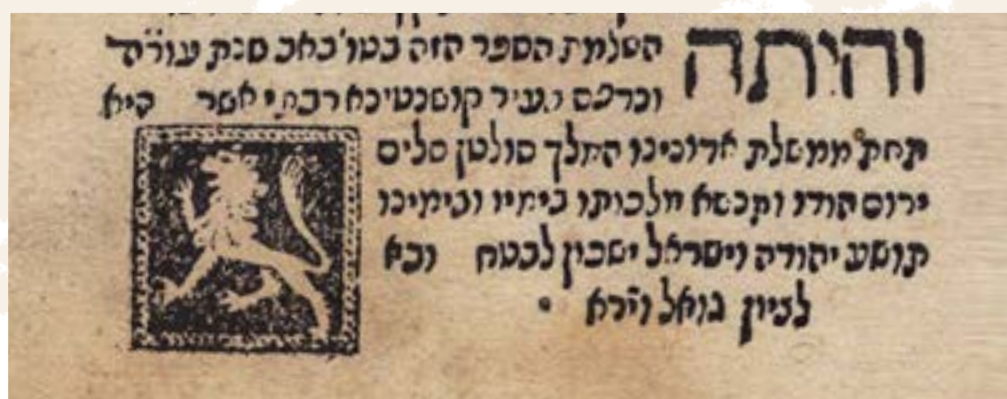 והיתה השלמת הספר הזה בטו' באב שנת עורה
ונדפס בעיר קושטנטינא רבתי אשר היא
תחת ממשלת אדונינו המלך סולטן סלים
ירום הודו ותנשא מלכותו בימיו ובימינו
תושע יהודה וישראל ישכון לבטח ובא
לציון גואל